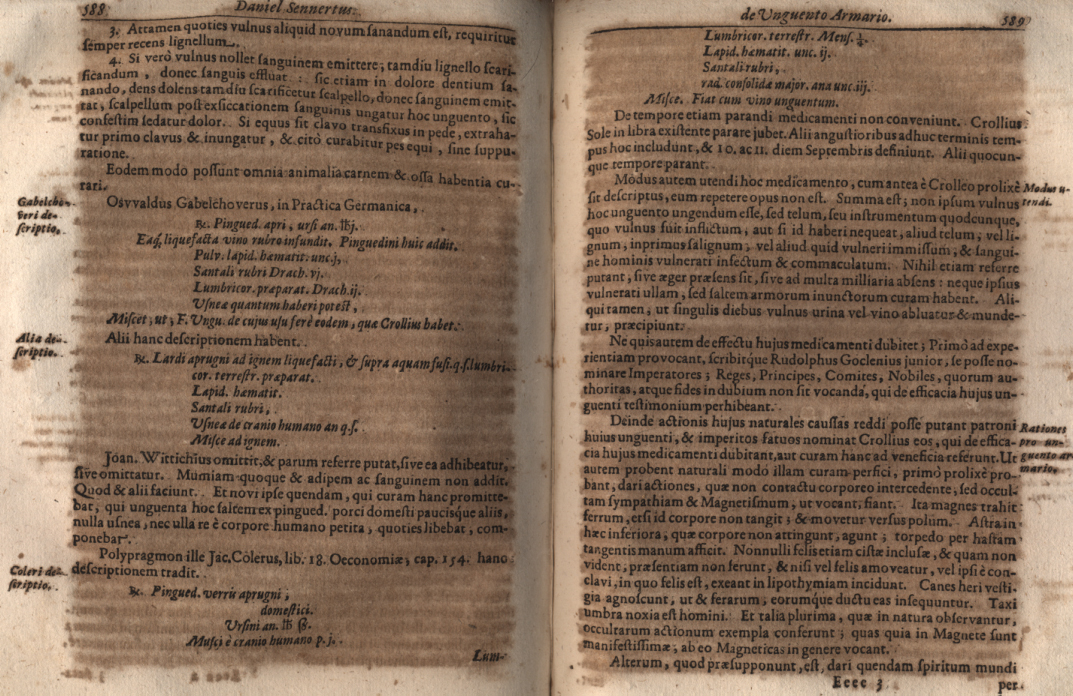 588 Daniel Sennertus.
3. Attamen quoties vulnus aliquid novum sanandum est, requiritur
semper recens lignellum.
4. Si verò vulnus nollet sanguinem emittere; tamdiu lignello scari-
ficandum, donec sanguis effluat: sic etiam in dolore dentium sa-
nando, dens dolens tamdiu scarificetur scalpello, donec sanguinem emit-
tat, scalpellum post exsiccationem sanguinis ungatur hoc unguento, sic
confestim sedatur dolor. Si equus sit clavo transfixus in pede, extraha-
tur primo clavus & inungatur, & citò curabitur pes equi, sine suppu-
ratione.
Eodem modo possunt omnia animalia carnem & ossa habentia cu-
rari.
Gabelcho-
veri de-
scriptio.
Osvvaldus Gabelchoverus, in Practica Germanica,
℞. Pingued. apri, ursi an. ℔j.
Eaq; liquefacta vino rubro infundit. Pinguedini huic addit.
Pulv. lapid. hæmatit. unc. j,
Santali rubri Drach. vj.
Lumbricor. præparat. Drach. ij.
Vsneæ quantum haberi potest,
Miscet, ut, F. Vngu. de cujus usu ferè eodem, quæ Crollius habet.
Alia de-
scriptio.
Alii hanc descriptionem habent.
℞. Lardi aprugni ad ignem liquefacti, & supra aquam fusi. q.s. lumbri-
cor. terrestr. præparat.
Lapid. hæmatit.
Santali rubri,
Vsneæ de cranio humano an q.s.
Misce ad ignem.
Joan. Wittichius omittit, & parum referre putat, sive ea adhibeatur,
sive omittatur. Mumiam quoque & adipem ac sanguinem non addit.
Quod & alii faciunt. Et novi ipse quendam, qui curam hanc promitte-
bat, qui unguenta hoc saltem ex pingued. porci domesti paucisque aliis,
nulla usnea, nec ulla re è corpore humano petita, quoties libebat, com-
ponebat.
Coleri de-
scriptio.
Polypragmon ille Jac. Colerus, lib. 18. Oeconomiæ, cap. 154. hanc
descriptionem tradit.
℞. Pingued. verris aprugni,
domestici.
Ursini an. ℔ ß.
Musci è cranio humano p. j.
Lum-
de Unguento Armario. 589
Lumbricor. terrestr. Mens. ½.
Lapid. hæmatit. unc. ij.
Santali rubri,
rad. consolida major. ana unc. iij.
Misce. Fiat cum vino unguentum.
De tempore etiam parandi medicamenti non conveniunt. Crollius
Sole in libra existente parare jubet. Alii angustioribus adhuc terminis tem-
pus hoc includunt, & 10. ac 11. diem Septembris definiunt. Alii quocun-
que tempore parant.
Modus u-
tendi.
Modus autem utendi hoc medicamento, cum antea è Crolleo prolixè
sit descriptus, eum repetere opus non est. Summa est; non ipsum vulnus
hoc unguento ungendum esse, sed telum, seu instrumentum quodcunque,
quo vulnus fuit inflictum; aut si id haberi nequeat, aliud telum, vel li-
gnum, inprimus salignum; vel aliud quid vulneri immissum, & sangui-
ne hominis vulnerati infectum & commaculatum. Nihil etiam referre
putant, sive æger præsens sit, sive ad multa milliaria absens: neque ipsius
vulnerati ullam, sed saltem armorum inunctorum curam habent. Ali-
qui tamen, ut singulis diebus vulnus urina vel vino abluatur & munde-
tur, præcipiunt.
Ne quis autem de effectu hujus medicamenti dubitet; Primò ad expe-
rientiam provocant, scribitque Rudolphus Goclenius junior, se posse no-
minare Imperatores; Reges, Principes, Comites, Nobiles, quorum au-
thoritas, atque fides in dubium non sit vocanda, qui de efficacia hujus un-
guenti testimonium perhibeant.
Rationes
pro un-
guento ar-
mario.
Deinde actionis hujus naturales caussas reddi posse putant patroni
huius unguenti, & imperitos fatuos nominat Crollius eos, qui de effica-
cia hujus medicamenti dubitant, aut curam hanc ad veneficia referunt. Ut
autem probent naturali modo illam curam perfici, primò prolixè pro-
bant, dari actiones, quæ non contactu corporeo intercedente, sed occul-
tam sympathiam & Magnetismum, ut vocant, fiant. Ita magnes trahit
ferrum, etsi id corpore non tangit; & movetur versus polum. Astra in
hæc inferiora, quæ corpore non attingunt, agunt; torpedo per hastam
tangentis manum afficit. Nonnulli felis etiam cistæ inclusæ, & quam non
vident, præsentiam non ferunt, & nisi vel felis amoveatur, vel ipsi è con-
clavi, in quo felis est, exeant in lipothymiam incidunt. Canes heri vesti-
gia agnoscunt, ut & ferarum, eorumque ductu eas insequuntur. Taxi
umbra noxia est homini. Et talia plurima, quæ in natura observantur,
occultarum actionum exempla conferunt; quas quia in Magnete sunt
manifestissimæ, ab eo Magneticas in genere vocant.
Alterum, quod præsupponunt, est, dari quendam spiritum mundi
Eeee 3 per-